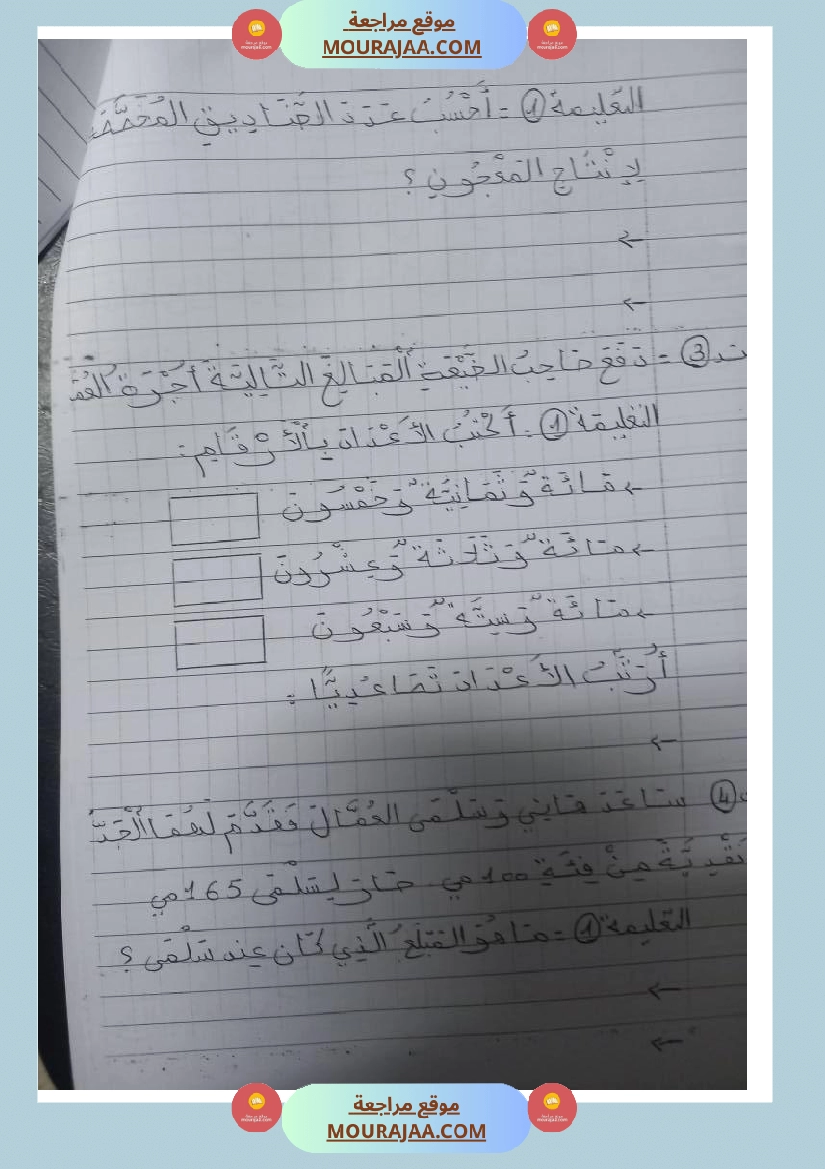 موقع مراجعة
MOURAJAA.COM
التعليمة ① = أَحْسُبُ عَدَدَ الصَّنَادِيقِ المُخَصَّصَةِ
لِإِنْتَاجِ المَعْجُونِ ؟
←
←
ت ③ = دَفَعَ صَاحِبُ الضَّيْعَةِ الْمَبَالِغَ التَّالِيَةَ أُجْرَةَ
التعليمة ① = أَكْتُبُ الأَعْدَادَ بِالْأَرْقَامِ :
← مَائَةٌ وَثَمَانِيَةٌ وَخَمْسُونَ
← مَائَةٌ وَثَلَاثَةٌ وَعِشْرُونَ
← مَائَةٌ وَسِتَّةٌ وَسَبْعُونَ
أُرَتِّبُ الأَعْدَادَ تَصَاعُدِيًّا :
←
④ سَاعَدَ هَانِي وَسَلْمَى العُمَّالَ فَقَدَّمَ لَهُمَا الْجَدُّ
نَقْدِيَّةً مِنْ فِئَةِ 100 مي صَارَ لِسَلْمَى 165 مي
التعليمة ① = مَا هُوَ المَبْلَغُ الَّذِي كَانَ عِنْدَ سَلْمَى ؟
←
←
موقع مراجعة
MOURAJAA.COM